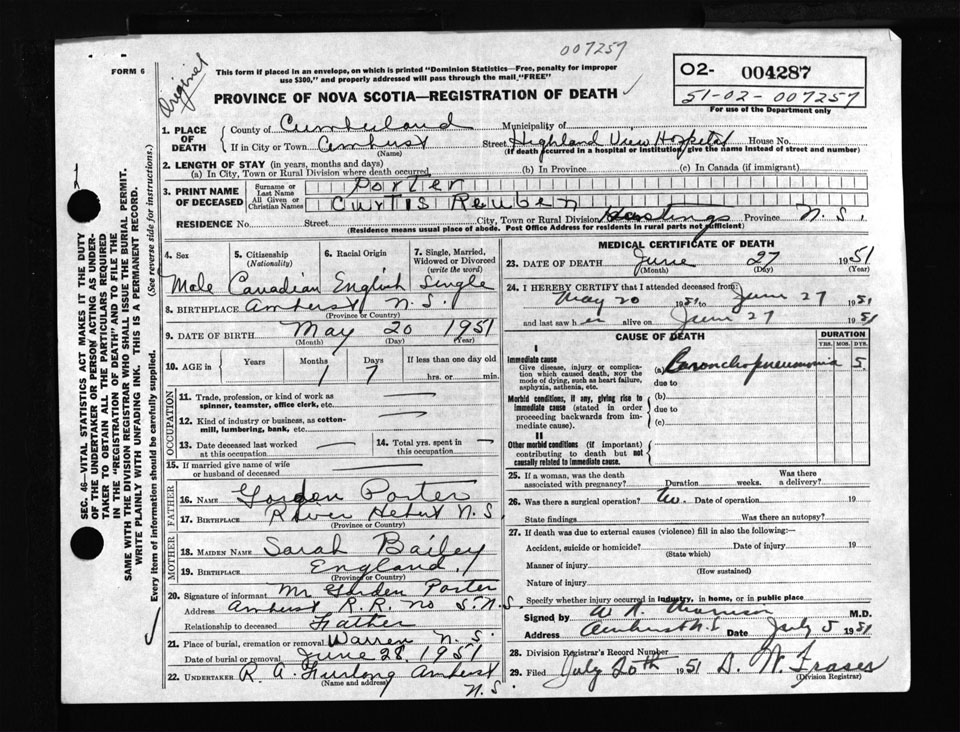 007257
FORM 6
Original
This form if placed in an envelope, on which is printed "Dominion Statistics—Free, penalty for improper
use $300," and properly addressed will pass through the mail "FREE"
O2- 004287
51-02-007257
For use of the Department only
PROVINCE OF NOVA SCOTIA—REGISTRATION OF DEATH
1. PLACE OF DEATH
County of Cumberland Municipality of
If in City or Town Amherst Street Highland View Hospital House No.
(Name) (If death occurred in a hospital or institution, give the name instead of street and number)
2. LENGTH OF STAY (in years, months and days)
(a) In City, Town or Rural Division where death occurred (b) In Province (c) In Canada (if immigrant)
3. PRINT NAME OF DECEASED
Surname or Last Name Porter
All Given or Christian Names Curtis Reuben
RESIDENCE No. Street City, Town or Rural Division Hastings Province N.S.
(Residence means usual place of abode. Post Office Address for residents in rural parts not sufficient)
4. Sex 5. Citizenship (Nationality) 6. Racial Origin 7. Single, Married, Widowed or Divorced (write the word)
Male Canadian English Single
8. BIRTHPLACE Amherst N.S.
(Province or Country)
9. DATE OF BIRTH May 20 1951
(Month) (Day) (Year)
10. AGE in Years Months Days If less than one day old
1 7 hrs. or min.
OCCUPATION
11. Trade, profession, or kind of work as
spinner, teamster, office clerk, etc.
12. Kind of industry or business, as cotton-
mill, lumbering, bank, etc.
13. Date deceased last worked
at this occupation
14. Total yrs. spent in
this occupation
15. If married give name of wife
or husband of deceased
FATHER
16. NAME Gorden Porter
17. BIRTHPLACE River Hebert N.S
(Province or Country)
MOTHER
18. MAIDEN NAME Sarah Bailey
19. BIRTHPLACE England
(Province or Country)
20. Signature of informant Mr Gorden Porter
Address Amherst R.R. No 5. N.S.
Relationship to deceased Father
21. Place of burial, cremation or removal Warren N.S.
Date of burial or removal June 28. 1951
22. UNDERTAKER R. A. Furlong Amherst
(Name and address) N.S.
MEDICAL CERTIFICATE OF DEATH
23. DATE OF DEATH June 27 1951
(Month) (Day) (Year)
24. I HEREBY CERTIFY that I attended deceased from:
May 20 1951 to June 27 1951
and last saw h alive on June 27 1951
CAUSE OF DEATH DURATION
YRS. MOS. DYS.
I
Immediate cause (a) Bronchopneumonia 5
Give disease, injury or complica-
tion which caused death, NOT the
mode of dying, such as heart failure,
asphyxia, asthenia, etc.
due to
Morbid conditions, if any, giving rise to
immediate cause (stated in order
proceeding backwards from im-
mediate cause).
(b)
due to
(c)
II
Other morbid conditions (if important)
contributing to death but not
causally related to immediate cause.
25. If a woman, was the death
associated with pregnancy? Duration weeks. Was there
a delivery?
26. Was there a surgical operation? No. Date of operation 19
State findings Was there an autopsy?
27. If death was due to external causes (violence) fill in also the following:—
Accident, suicide or homicide? Date of injury 19
(State which)
Manner of injury
(How sustained)
Nature of injury
Specify whether injury occurred in industry, in home, or in public place
Signed by M.D.
Address Amherst N.S Date July 5 1951
28. Division Registrar's Record Number
29. Filed July 20th 1951 D. W. Fraser
(Division Registrar)
SEC. 46—VITAL STATISTICS ACT MAKES IT THE DUTY
OF THE UNDERTAKER OR PERSON ACTING AS UNDER-
TAKER TO OBTAIN ALL THE PARTICULARS REQUIRED
IN THE "REGISTRATION OF DEATH" AND TO FILE THE
SAME WITH THE DIVISION REGISTRAR WHO SHALL ISSUE THE BURIAL PERMIT.
WRITE PLAINLY WITH UNFADING INK. THIS IS A PERMANENT RECORD.
Every item of information should be carefully supplied. (See reverse side for instructions.)